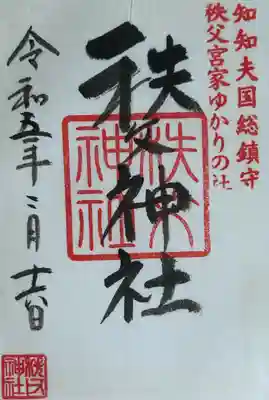 知知夫国総鎮守
秩父宮家ゆかりの社
秩父神社
秩父神社
令和五年二月十六日
秩父神社